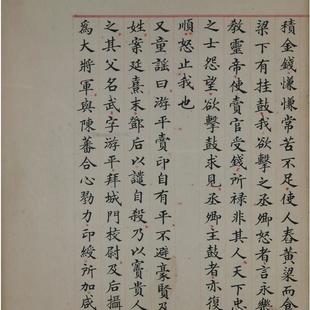 積金錢慊慊常苦不足使人舂黃粱而食
梁下有挂鼓我欲擊之丞卿怒者言永樂
敎靈帝使賣官受錢所祿非其人天下忠
之士怨望欲擊鼓求見丞卿主鼓者亦復
順怒止我也
又童謠曰游平賣印自有平不避豪賢及
姓案延熹末鄧后以譴自殺乃以竇貴人
之其父名武字游平拜城門校尉及后攝
爲大將軍與陳蕃合心勠力印綬所加咸